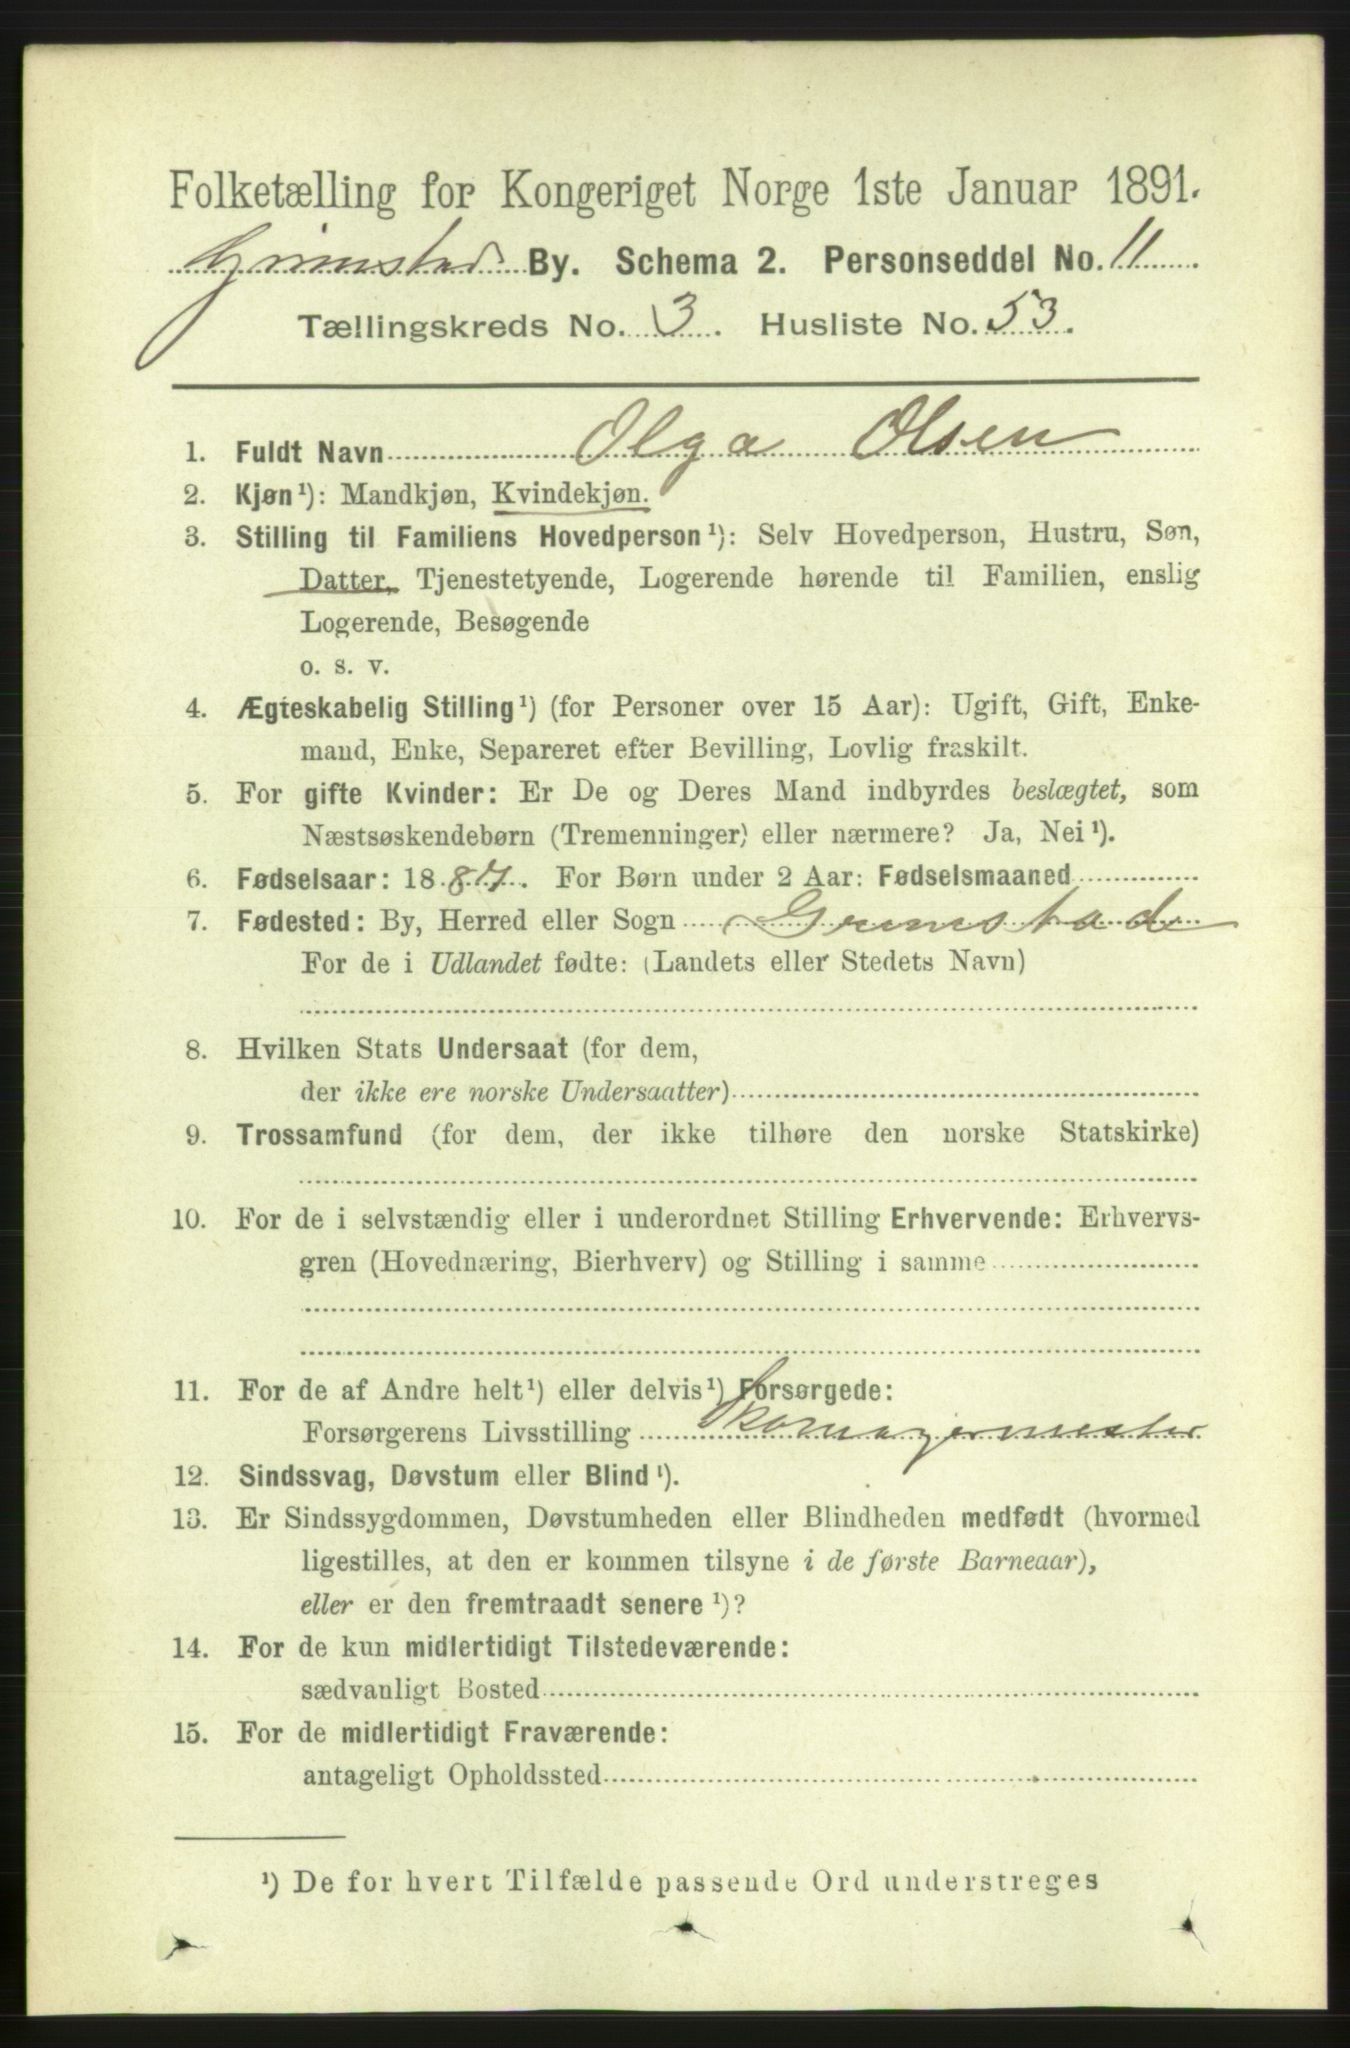 Folketælling for Kongeriget Norge 1ste Januar 1891.
Grimstad By. Schema 2. Personseddel No. 11
Tællingskreds No. 3. Husliste No. 53.
1. Fuldt Navn Olga Olsen
2. Kjøn¹): Mandkjøn, Kvindekjøn.
3. Stilling til Familiens Hovedperson¹): Selv Hovedperson, Hustru, Søn,
Datter, Tjenestetyende, Logerende hørende til Familien, enslig
Logerende, Besøgende
o. s. v.
4. Ægteskabelig Stilling¹) (for Personer over 15 Aar): Ugift, Gift, Enke-
mand, Enke, Separeret efter Bevilling, Lovlig fraskilt.
5. For gifte Kvinder: Er De og Deres Mand indbyrdes beslægtet, som
Næstsøskendebørn (Tremenninger) eller nærmere? Ja, Nei¹).
6. Fødselsaar: 1887. For Børn under 2 Aar: Fødselsmaaned
7. Fødested: By, Herred eller Sogn Grimstad
For de i Udlandet fødte: (Landets eller Stedets Navn)
8. Hvilken Stats Undersaat (for dem,
der ikke ere norske Undersaatter)
9. Trossamfund (for dem, der ikke tilhøre den norske Statskirke)
10. For de i selvstændig eller i underordnet Stilling Erhvervende: Erhvervs-
gren (Hovednæring, Bierhverv) og Stilling i samme
11. For de af Andre helt¹) eller delvis¹) Forsørgede:
Forsørgerens Livsstilling Skomagermester
12. Sindssvag, Døvstum eller Blind¹).
13. Er Sindssygdommen, Døvstumheden eller Blindheden medfødt (hvormed
ligestilles, at den er kommen tilsyne i de første Barneaar),
eller er den fremtraadt senere¹)?
14. For de kun midlertidigt Tilstedeværende:
sædvanligt Bosted
15. For de midlertidigt Fraværende:
antageligt Opholdssted
¹) De for hvert Tilfælde passende Ord understreges